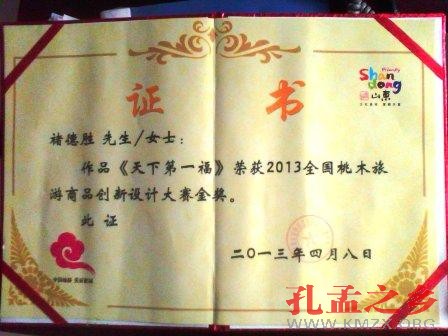 Friendly
Shan
dong
山東
文化圣地 度假天堂
证 书
褚德胜 先生/女士：
作品《天下第一福》荣获2013全国桃木旅
游商品创新设计大赛金奖。
此 证
二〇一三年四月八日
孔孟之乡
WWW.KMZX.ORG